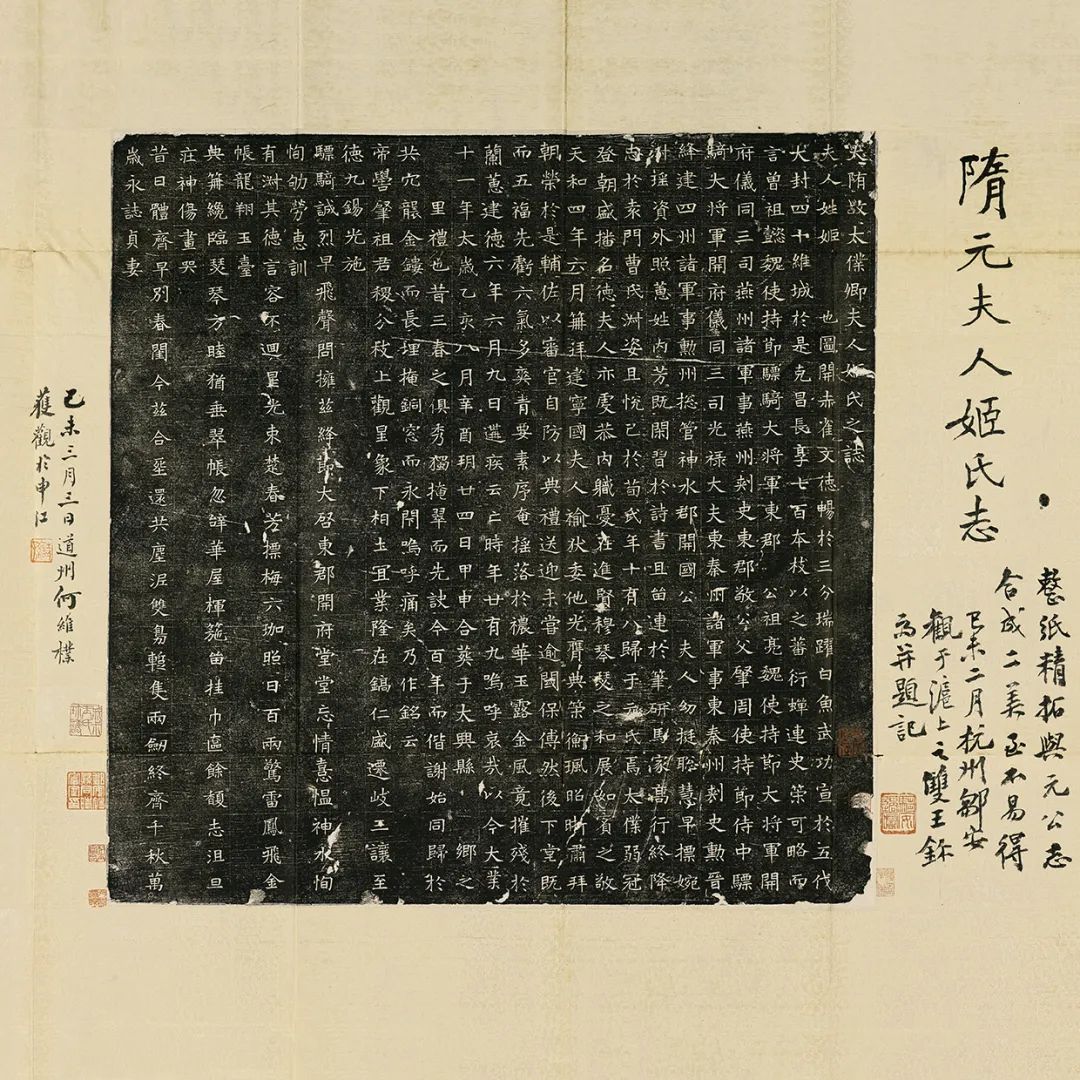 隋元夫人姬氏志
整紙精拓與元公志
合成二美至不易得
己未二月杭州鄒安
觀于滬上之雙王鉨
齋并題記
大隋故太僕卿夫人姬氏之誌
夫人姓姬　也圖開赤雀文德暢於三分瑞躍白魚武功宣於五代
大封四十維城於是克昌長享七百本枝以之蕃衍蟬連史策可略而
言曾祖懿魏使持節驃騎大將軍東郡　公祖亮魏使持節大將軍開
府儀同三司燕州諸軍事燕州刾史東郡敬公父肇周使持節侍中驃
騎大将軍開府儀同三司光禄大夫東秦州諸軍事東秦州刾史勳晉
絳建四州諸軍事勳州揔管神水郡開國公　夫人幼挺聡慧早標婉
淑瑶資外照蕙性內芳既閑習於詩書且留連於筆研馬家高行終降
志於袁門曹氏淑姿且悅己於荀氏年十有八歸于元氏焉太僕弱冠
登朝盛播名德夫人亦虔恭內軄憂在進賢穆琴瑟之和展如賓之敬
天和四年六月筞拜建寧國夫人褕狄委他光膺典筞衡珮昭晣肅拜
朝榮於是輔佐以審官自防以典禮送迎未嘗逾閾保傅然後下堂既
而五福先虧六氣多爽青要素序奄摇落於穠華玉露金風竟摧残於
蘭蕙建德六年六月九日遘疾云亡時年廿有九嗚呼哀哉以今大業
十一年太歲乙亥八月辛酉朔廿四日甲申合葬于大興縣　鄉之
里禮也昔三春之俱秀獨掩翠而先訣今百年而偕謝始同歸於
共穴襲金鏤而長埋掩銅窓而永閇嗚呼痛矣乃作銘云
帝嚳肇祖君稷分枝上觀星象下相土冝業隆在鎬仁盛遷岐三讓至
德九錫光施
驃騎誠烈早飛聲問擁兹絳節大启東郡開府堂堂忘情憙愠神水恂
恂劬勞惠訓
有淑其德言容不迴星光束楚春芳摽梅六珈照日百兩驚雷鳳飛金
帳龍翔玉臺
典筞纔臨瑟琴方睦猶垂翠帳忽辝華屋楎箷留挂巾區餘馥志沮旦
莊神傷晝哭
昔日體齊早別春閨今兹合葬還共塵泥雙鳧蹔集兩劒終齊千秋萬
歲永誌貞妻
己未三月三日道州何維樸
獲觀於申江